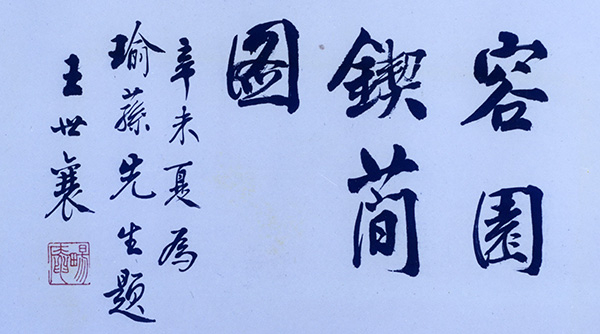 容園
鍥簡
图
辛未夏為
瑜蓀先生題
王世襄
暢安